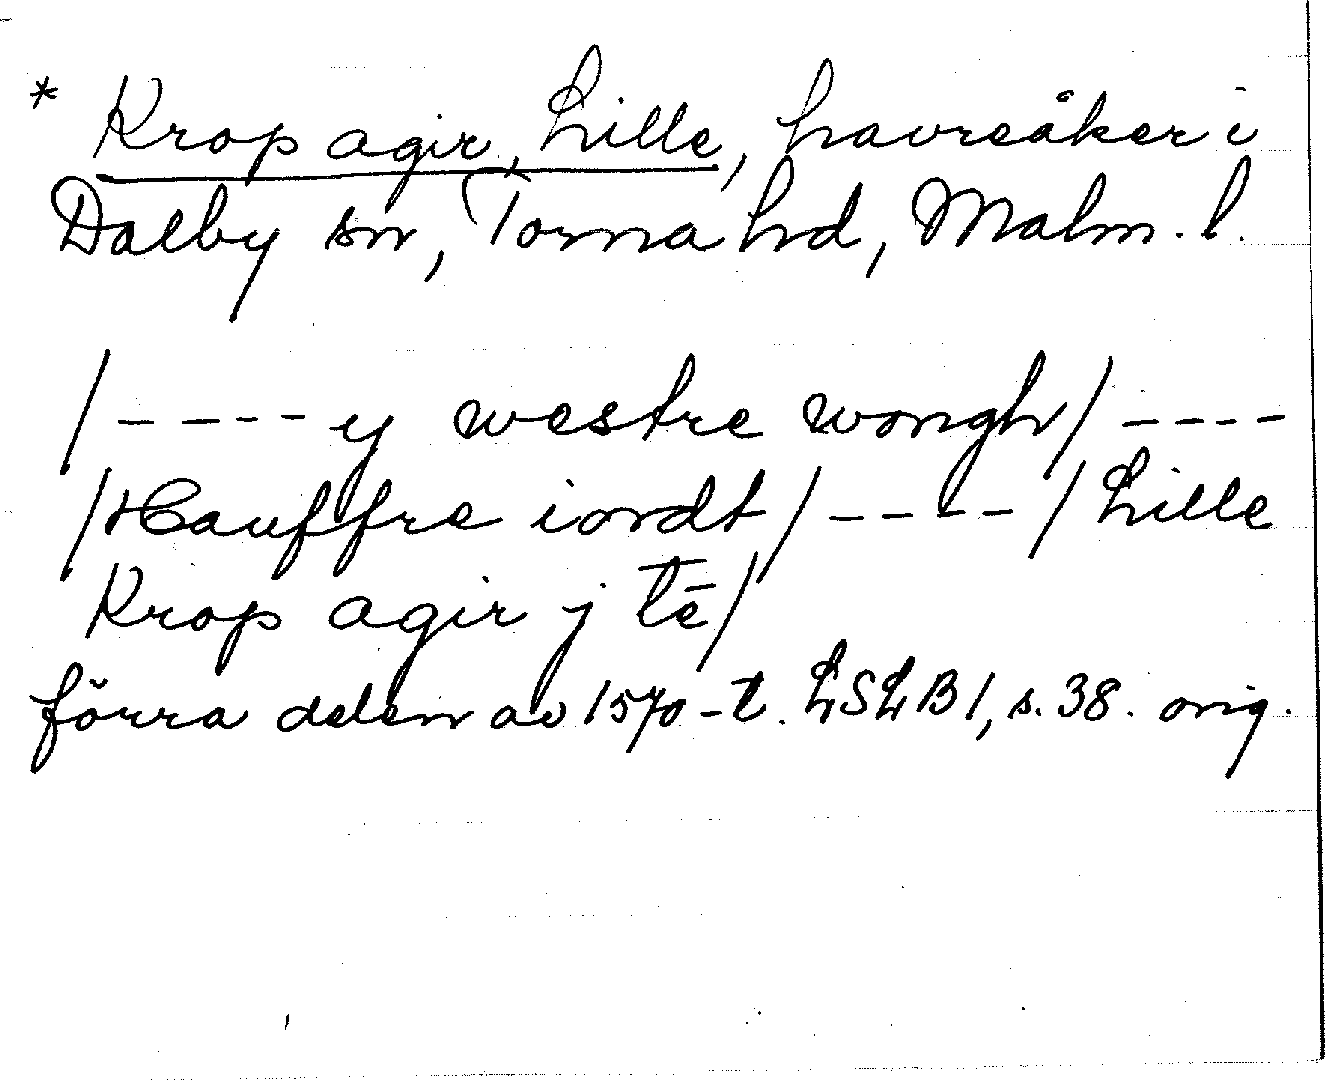 * Krop agir, Lille, havreåker i
Dalby sn, Torna hd, Malm. l.
/----y westre wongh/----
/Hauffre iordt/----/Lille
Krop agir j tē/
förra delen av 1570-t. LSLB1, s. 38. orig.